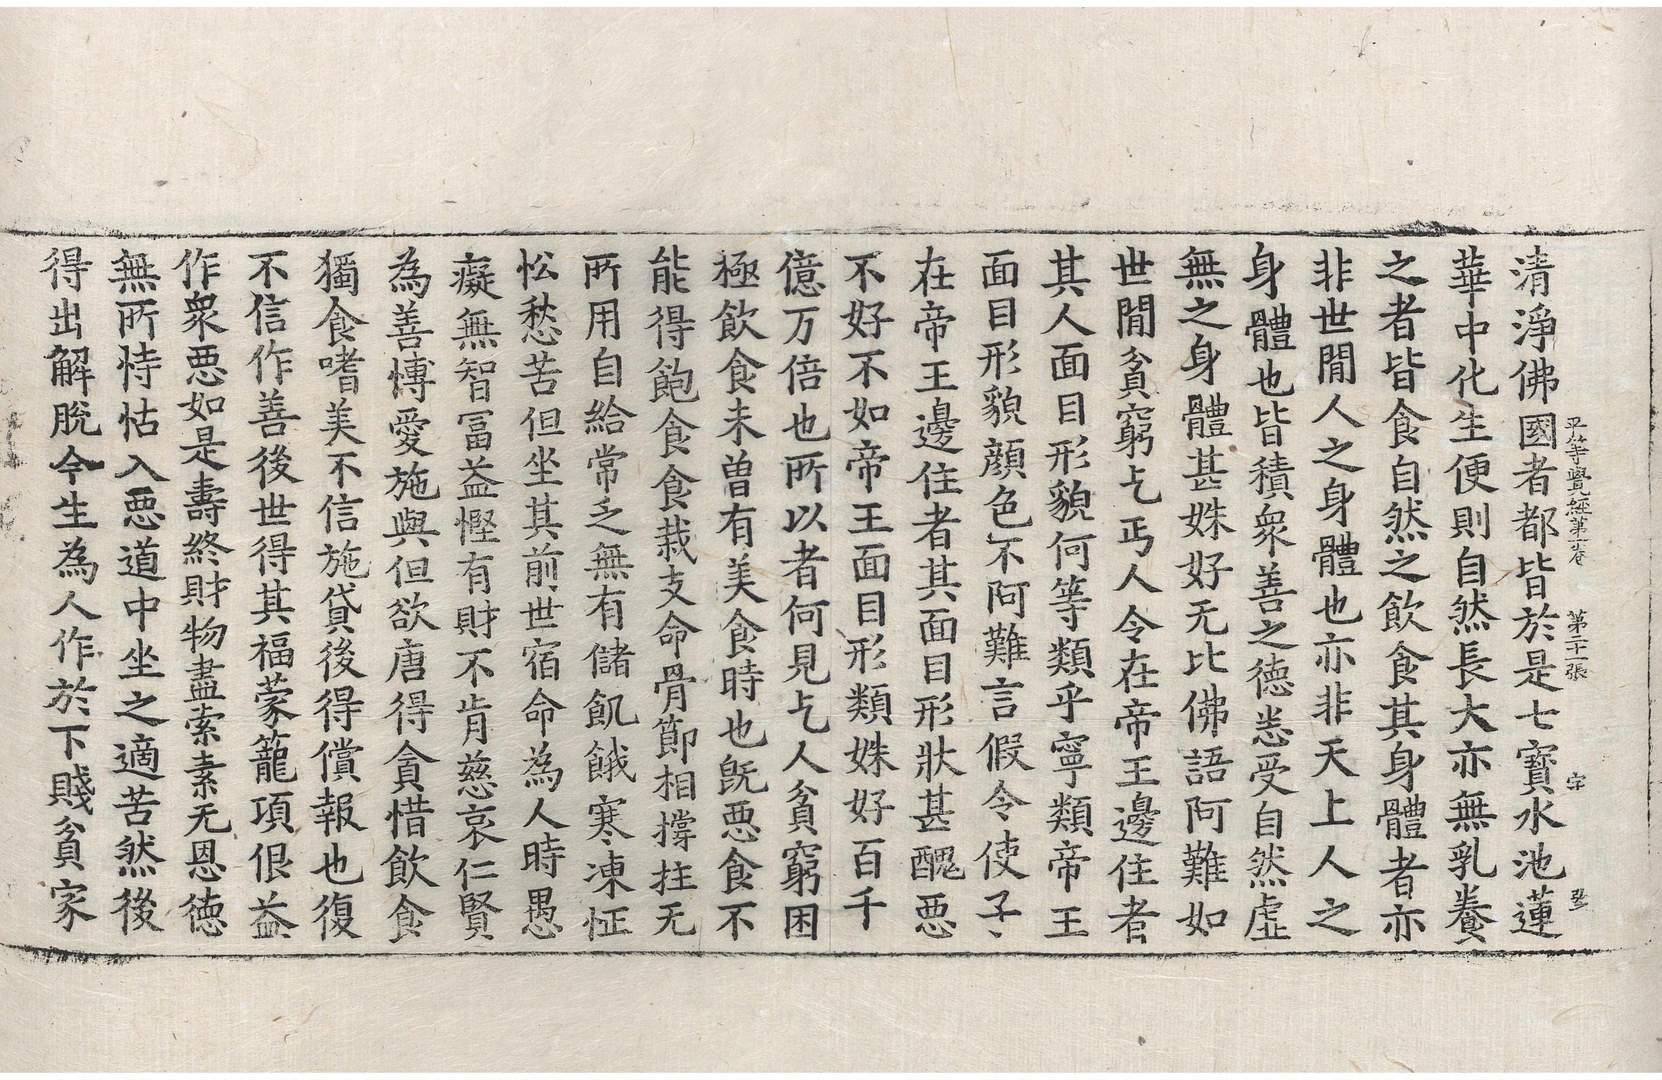 平等覺經第一卷 第二十一張 字
清淨佛國者都皆於是七寶水池蓮
華中化生便則自然長大亦無乳養
之者皆食自然之飲食其身體者亦
非世閒人之身體也亦非天上人之
身體也皆積衆善之德悉受自然虛
無之身體甚姝好无比佛語阿難如
世閒貧窮乞丐人令在帝王邊住者
其人面目形貌何等類乎寧類帝王
面目形貌顔色不阿難言假令使子
在帝王邊住者其面目形狀甚醜惡
不好不如帝王面目形類姝好百千
億万倍也所以者何見乞人貧窮困
極飲食未曽有美食時也旣惡食不
能得飽食食栽支命骨節相撐拄无
所用自給常乏無有儲飢餓寒凍怔
忪愁苦但坐其前世宿命為人時愚
癡無智冨益慳有財不肯慈哀仁賢
為善愽愛施與但欲唐得貪惜飲食
獨食嗜美不信施貸後得償報也復
不信作善後世得其福蒙籠項佷益
作衆惡如是壽終財物盡索素无恩徳
無所恃怙入惡道中坐之適苦然後
得出解脫今生為人作於下賤貧家